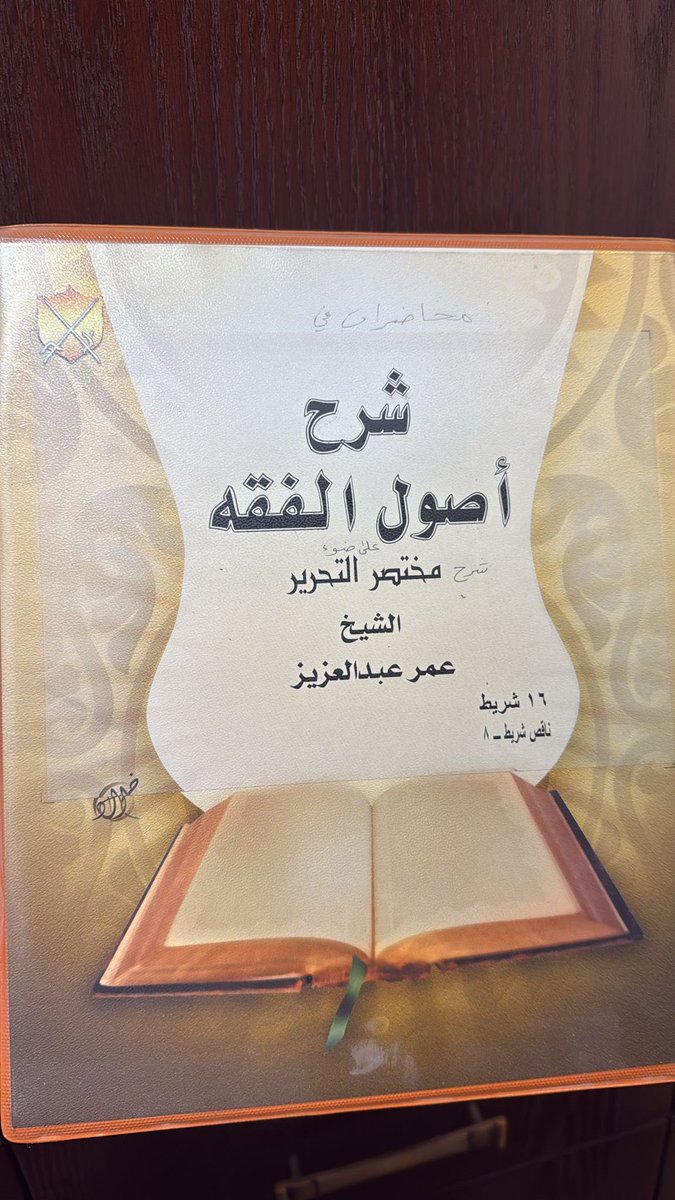 محاضرات في
شرح
أصول الفقه
على ضوء
شرح مختصر التحرير
الشيخ
عمر عبدالعزيز
١٦ شريط
ناقص شريط ــ ٨